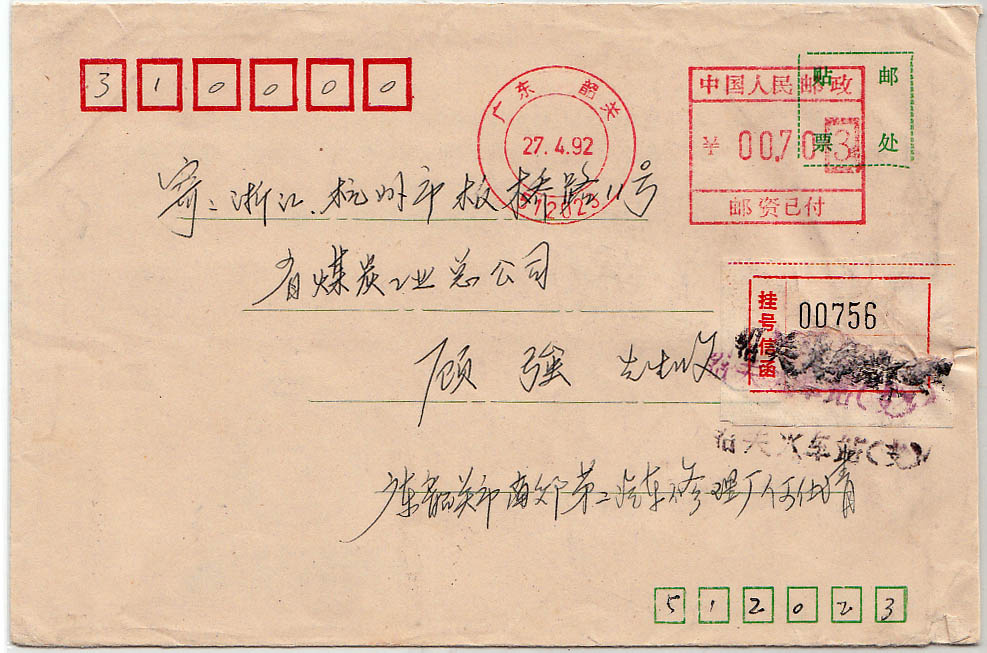 310000
广东 韶关
27.4.92
512023
中国人民邮政
¥ 00.70 3
邮资已付
贴邮
票处
寄:浙江.杭州市板桥路11号
省煤炭工业总公司
顾强 先生收
挂号信函
00756
韶关火车站(支)
广东韶关市南郊第二汽车修理厂何仕清
512023